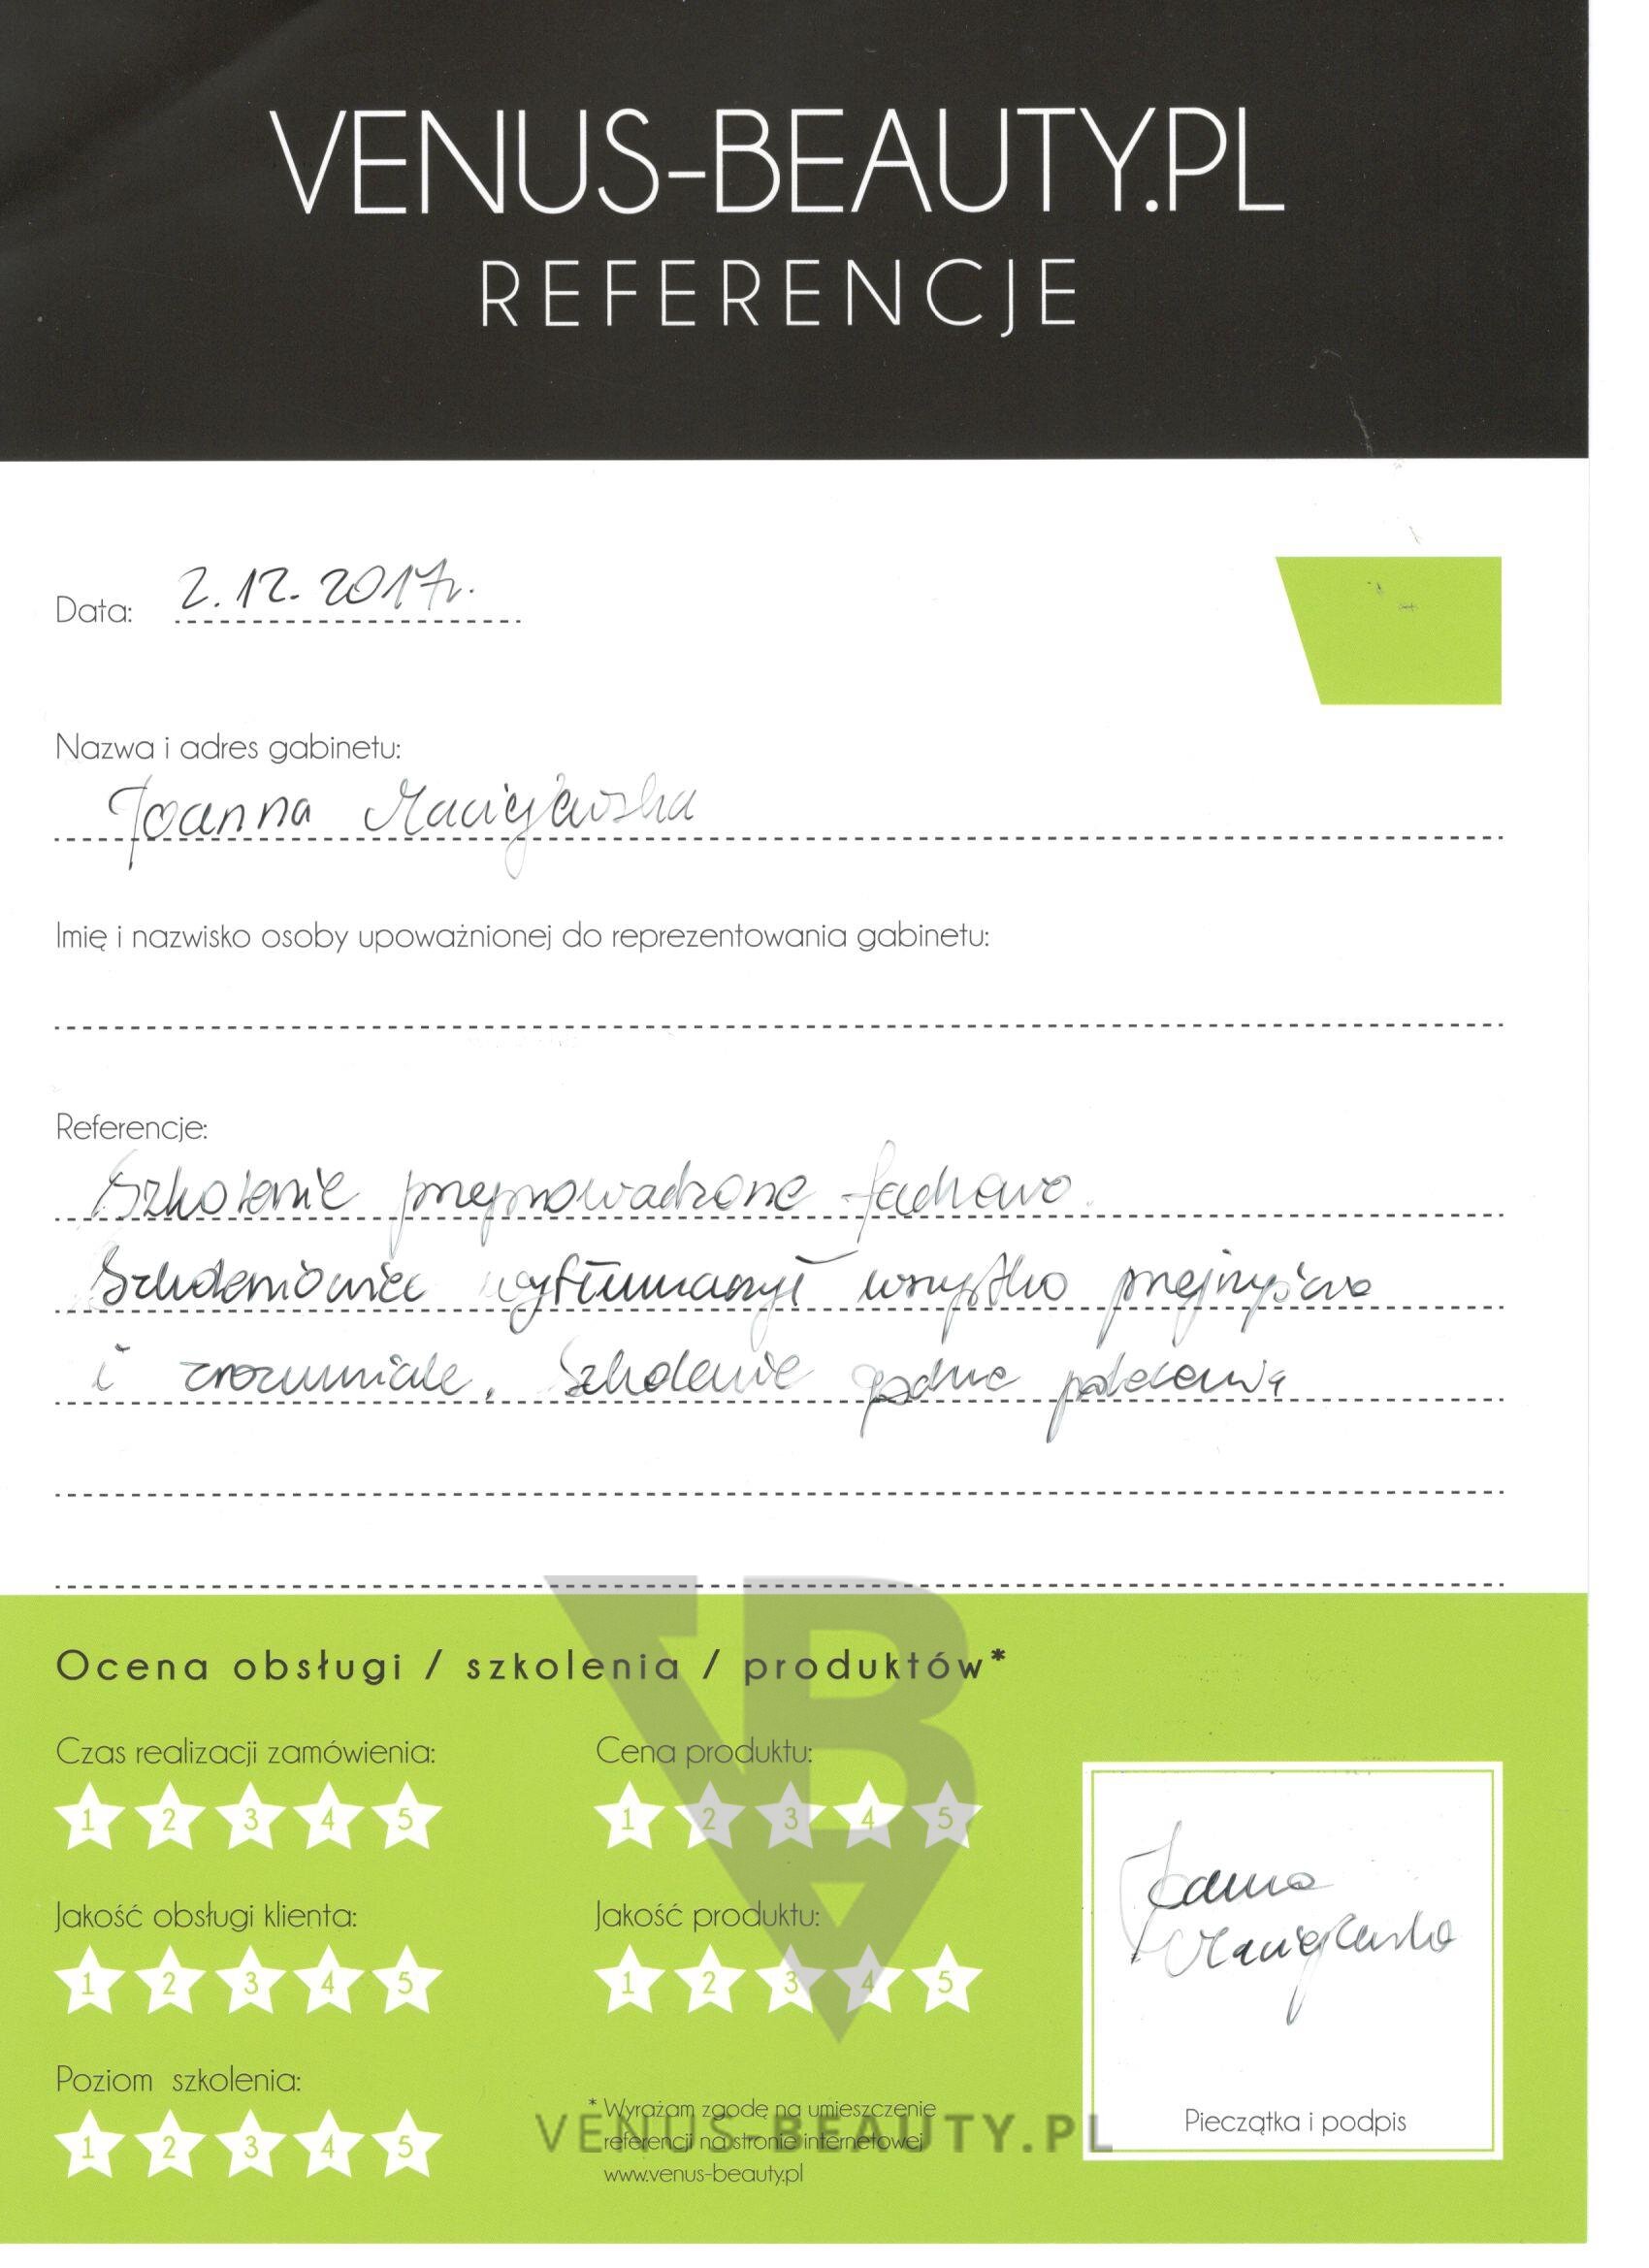 VENUS-BEAUTY.PL
REFERENCJE
Data: 2.12.2017r.
Nazwa i adres gabinetu:
Joanna Maciejewska
Imię i nazwisko osoby upoważnionej do reprezentowania gabinetu:
Referencje:
Szkolenie przeprowadzone fachowo.
Szkoleniowiec wytłumaczył wszystko przejrzyście
i zrozumiale. Szkolenie godne polecenia
Ocena obsługi / szkolenia / produktów*
Czas realizacji zamówienia:
1 2 3 4 5
Cena produktu:
1 2 3 4 5
Jakość obsługi klienta:
1 2 3 4 5
Jakość produktu:
1 2 3 4 5
Poziom szkolenia:
1 2 3 4 5
* Wyrażam zgodę na umieszczenie
referencji na stronie internetowej
www.venus-beauty.pl
VENUS-BEAUTY.PL
Joanna
Maciejewska
Pieczątka i podpis